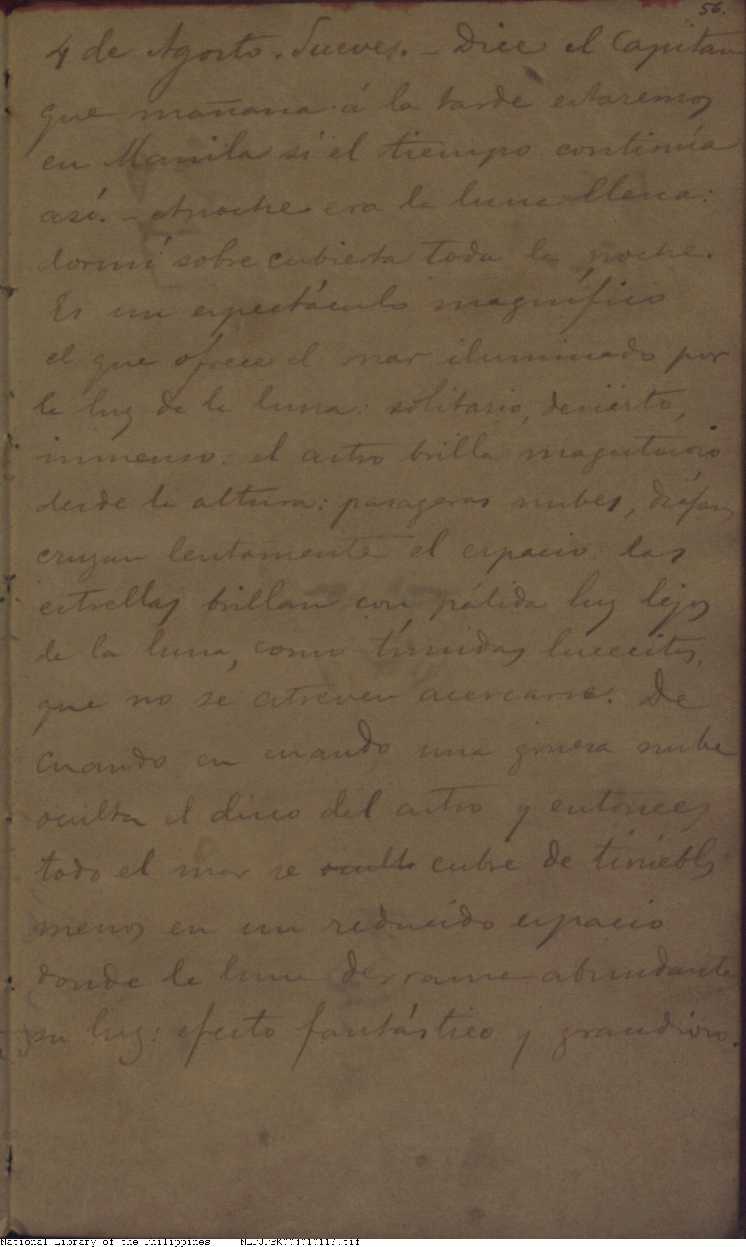 56.
4 de Agosto. Jueves. – Dice el Capitan
que mañana á la tarde estaremos
en Manila si el tiempo continúa
así. – Anoche era la luna llena:
dormí sobre cubierta toda la noche.
Es un espectáculo magnífico
el que ofrece el mar iluminado por
la luz de la luna: solitario, desierto,
inmenso: el astro brilla magestuoso
desde la altura: pasageras nubes, diáfanas
cruzan lentamente el espacio: las
estrellas brillan con pálida luz lejos
de la luna, como tímidas lucecitas,
que no se atreven acercarse. De
cuando en cuando una gruesa nube
oculta el disco del astro y entonces
todo el mar se oculta cubre de tinieblas
menos en un reducido espacio
donde la luna derrama abundante
su luz: efecto fantástico y grandioso.
National Library of the Philippines